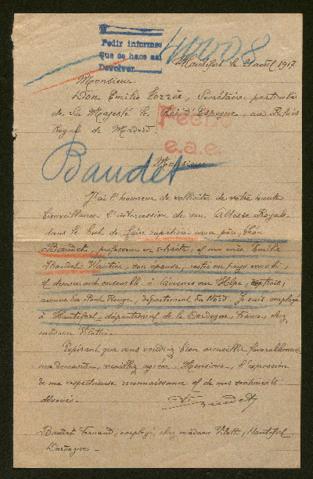 Pedir informes
que se hace así
Devolver.
Montfort le 21 août 1917
Monsieur
Don Emilio Secrétaire particulier
de Sa Majesté le Roi d'Espagne, au Palais
Royal de Madrid
Pedir
e.a.e.
Baudet
Monsieur
J'ai l'honneur de solliciter de votre haute
bienveillance l'intercession de son Altesse Royale
dans le but de faire rapatrier mon père, Léon
Baudet, professeur en retraite, et ma mère Emilie
son épouse, restés en pays envahi,
et demeurant ensemble à Avesnes sur Helpe,
avenue du Pont Rouge, département du Nord. Je suis employé
à Montfort, département de la Dordogne, France, chez
madame
Espérant que vous voudrez bien accueillir favorablement
ma demande, veuillez agréer, Monsieur, l'expression
de ma respectueuse reconnaissance et de mes sentiments
dévoués.
Baudet Fernand, employé chez madame Montfort
Dordogne